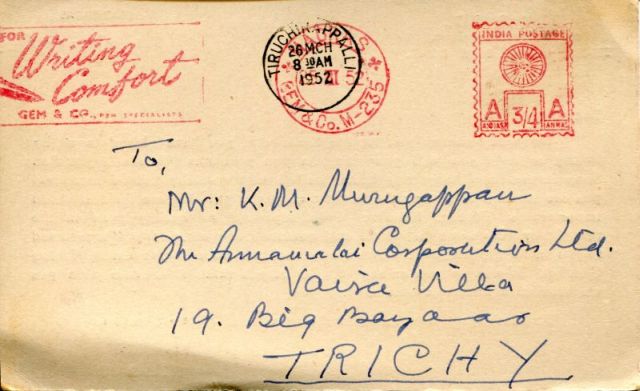 FOR
Writing
Comfort
GEM & CO., PEN SPECIALISTS
TIRUCHIRAPPALLI
26 MCH
8 30 AM
1952
GEM & Co. M-235
INDIA POSTAGE
A 3/4 A
ANNAS
To,
Mr: K. M. Murugappan
The Annamalai Corporation Ltd.
Villa
19. Big Bazaar
TRICHY